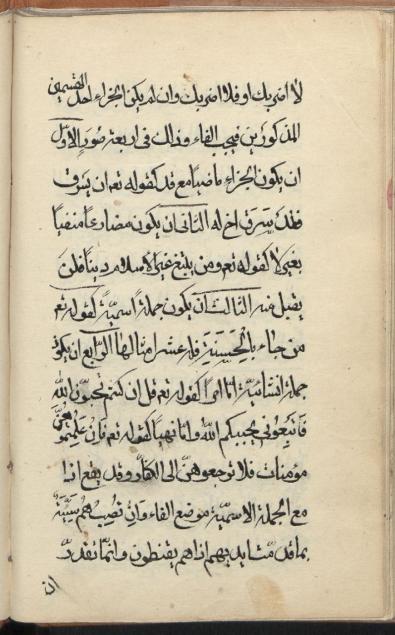 لا اضربك او فلا اضربك وان لم يكن الجزاء احد القسمين
المذكورين فيجب الفاء وذلك في اربعة صور الاول
ان يكون الجزاء ماضيا مع قد كقوله تع ان يسرق
فقد سرق اخ له الثاني ان يكون مضارعا منفيا
بغير لا كقوله تع ومن يبتغ غير الاسلام دينا فلن
يقبل منه الثالث ان يكون جملة اسمية كقوله تع
من جاء بالحسنة فله عشر امثالها الرابع ان يكون
جملة انشائية اما امرا كقوله تع قل ان كنتم تحبون الله
فاتبعوني يحببكم الله واما نهيا كقوله تع فان علمتموهن
مؤمنات فلا ترجعوهن الى الكفار وقد يقع اذا
مع الجملة الاسمية موضع الفاء وان تصبهم سيئة
بما قدمت ايديهم اذا هم يقنطون وانما تقدر
ان